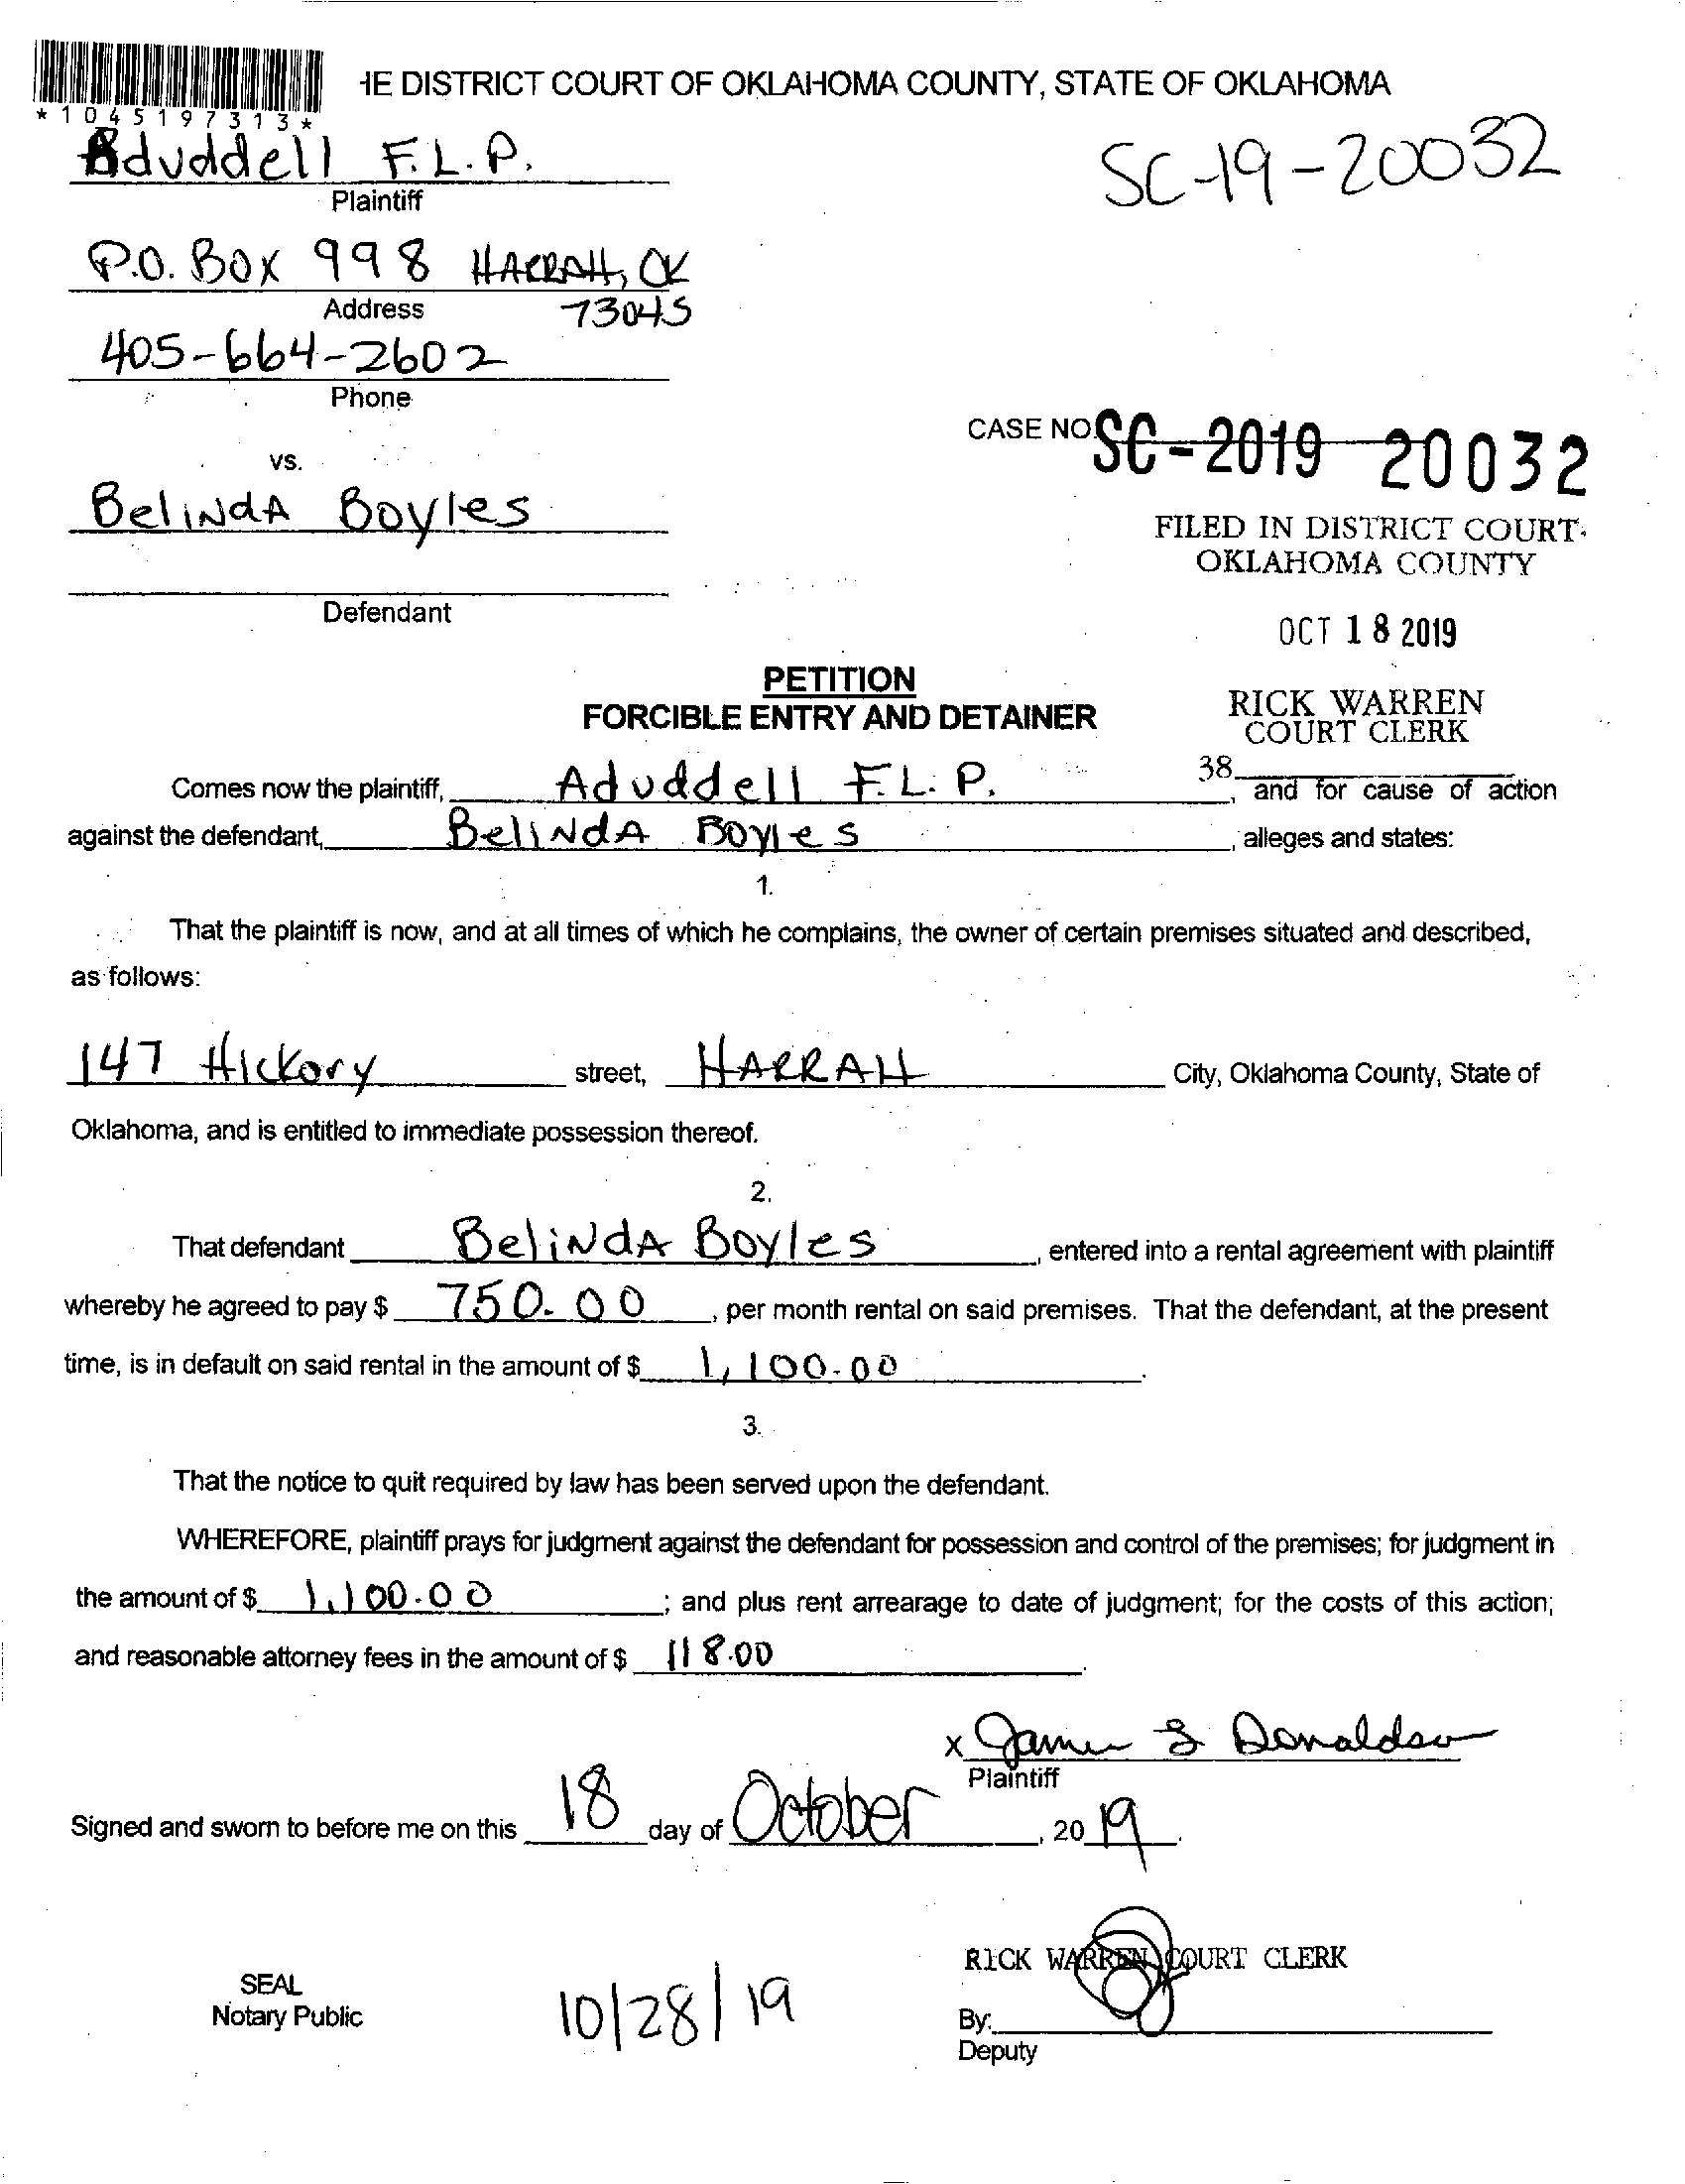 IE DISTRICT COURT OF OKLAHOMA COUNTY, STATE OF OKLAHOMA
*1045197313*
Aduddell F.L.P.
SC-19-20032
Plaintiff
P.O. BOX 998 HARRAH, OK
Address 73045
405-664-2602
Phone
CASE NO. SC-2019 20032
vs.
BeliNdA Boyles
FILED IN DISTRICT COURT
OKLAHOMA COUNTY
Defendant
OCT 18 2019
PETITION
FORCIBLE ENTRY AND DETAINER
RICK WARREN
COURT CLERK
38
Comes now the plaintiff, Aduddell F.L.P., and for cause of action
against the defendant, BeliNdA Boyles, alleges and states:
1.
That the plaintiff is now, and at all times of which he complains, the owner of certain premises situated and described,
as follows:
147 Hickory street, HARRAH City, Oklahoma County, State of
Oklahoma, and is entitled to immediate possession thereof.
2.
That defendant BeliNdA Boyles, entered into a rental agreement with plaintiff
whereby he agreed to pay $ 750.00, per month rental on said premises. That the defendant, at the present
time, is in default on said rental in the amount of $ 1,100.00.
3.
That the notice to quit required by law has been served upon the defendant.
WHEREFORE, plaintiff prays for judgment against the defendant for possession and control of the premises; for judgment in
the amount of $ 1,100.00; and plus rent arrearage to date of judgment; for the costs of this action;
and reasonable attorney fees in the amount of $ 118.00.
x James L Donaldson
Plaintiff
Signed and sworn to before me on this 18 day of October, 2019.
RICK WARREN COURT CLERK
SEAL
Notary Public
10/28/19
By:
Deputy